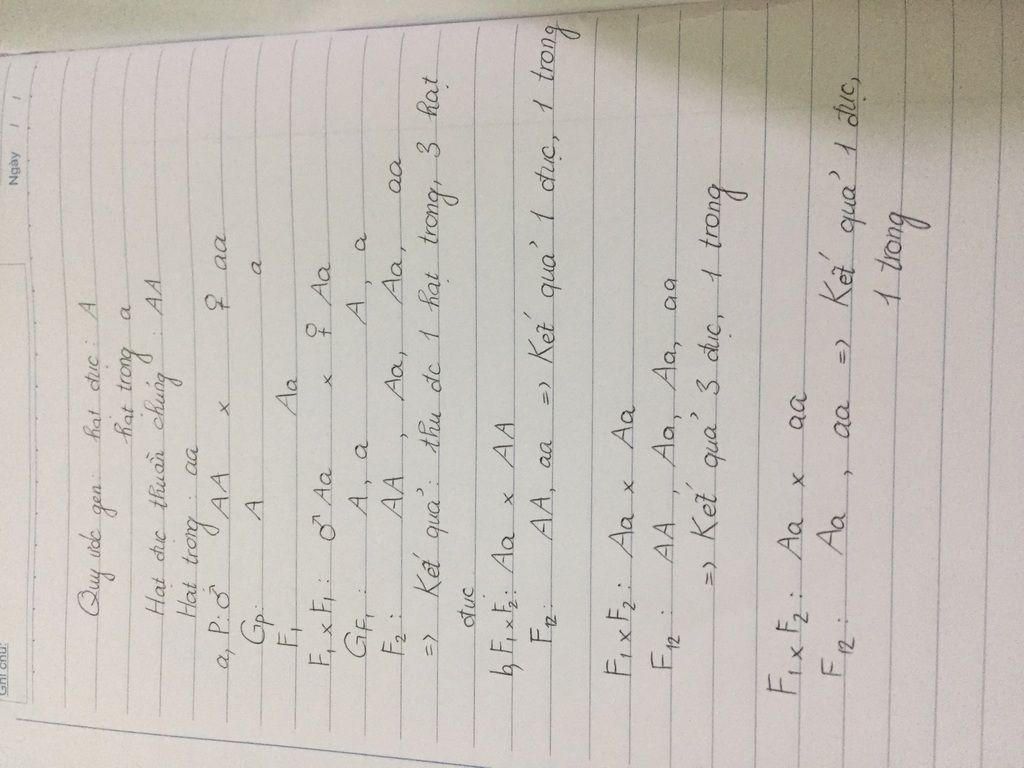 Ghi chú:
Ngày / /
Quy ước gen: hạt đục: A
hạt trong a
Hạt đục thuần chủng: AA
Hạt trong: aa
a, P: ♂ AA x ♀ aa
Gp: A a
F1 Aa
F1 x F1: ♂ Aa x ♀ Aa
GF1: A, a A, a
F2: AA, Aa, Aa, aa
=> Kết quả: thu đc 1 hạt trong, 3 hạt
đục
b, F1 x F2: Aa x AA
F12: AA, aa => Kết quả 1 đục, 1 trong
F1 x F2: Aa x Aa
F12: AA, Aa, Aa, aa
=> Kết quả 3 đục, 1 trong
F1 x F2: Aa x aa
F12: Aa, aa => Kết quả 1 đục,
1 trong